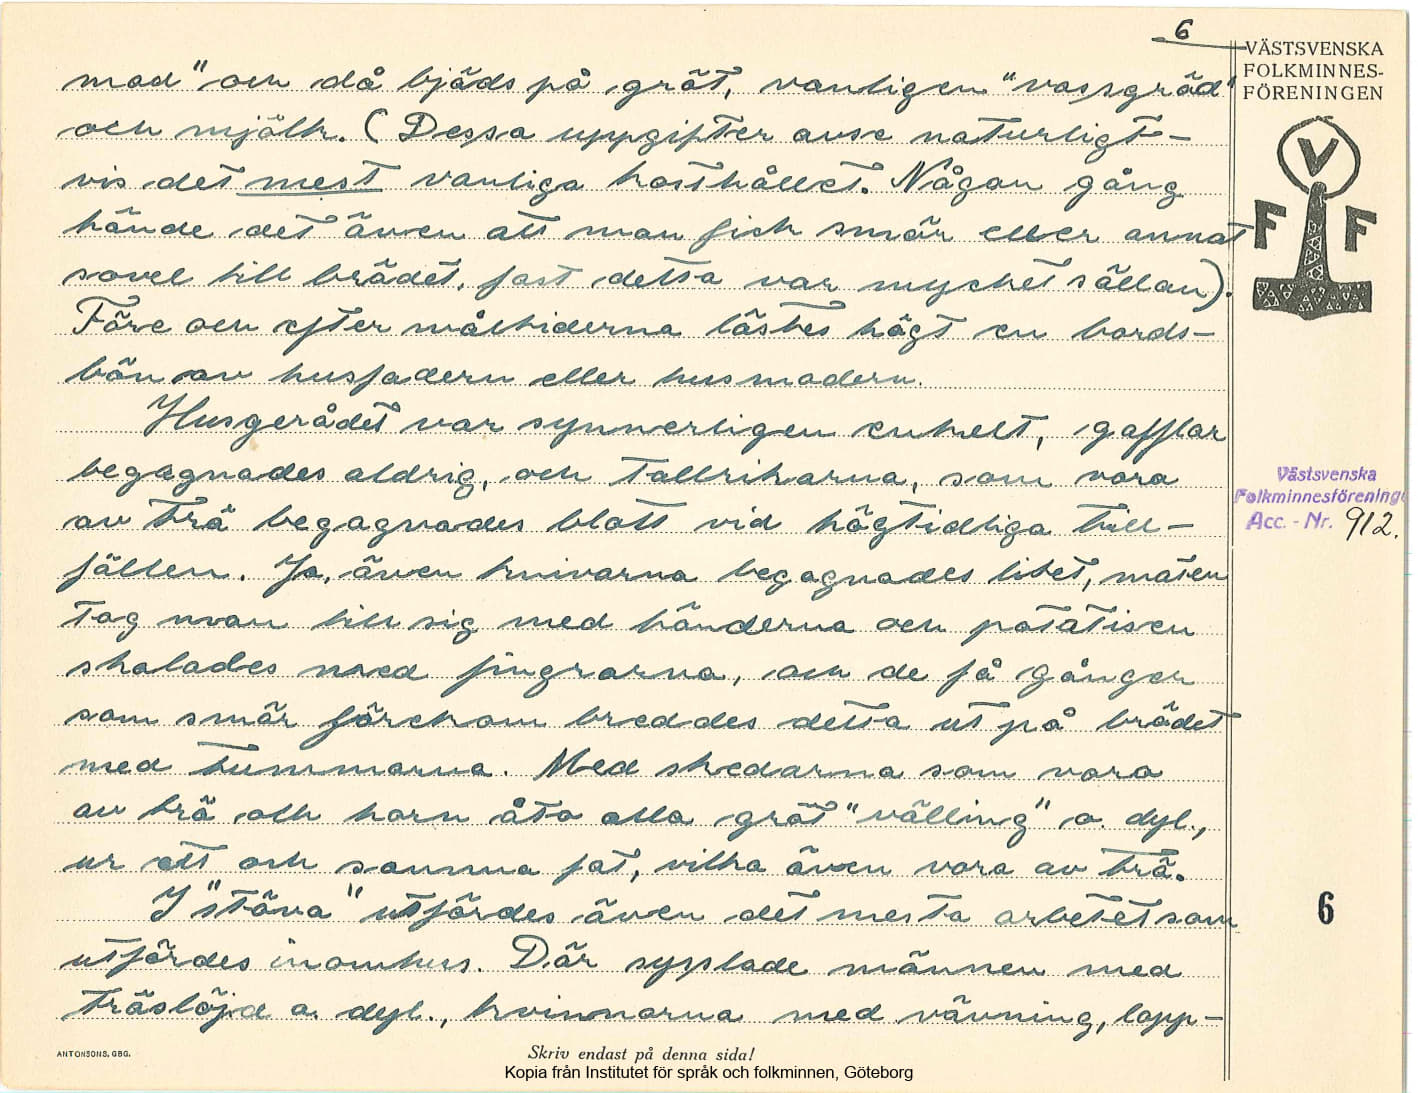 6
VÄSTSVENSKA
FOLKMINNES-
FÖRENINGEN
mad" och då bjöds på gröt, vanligen "vassgröd"
och mjölk. (Dessa uppgifter avse naturligt-
vis det mest vanliga kosthållet. Någon gång
hände det även att man fick smör eller annat
sovel till brödet, fast detta var mycket sällan).
Före och efter måltiderna lästes högt en bords-
bön av husfadern eller husmodern.
Husgerådet var synnerligen enkelt, gafflar
begagnades aldrig, och tallrikarna, som vora
av trä begagnades blott vid högtidliga till-
fällen. Ja, även knivarna begagnades litet, maten
tog man till sig med händerna och potatisen
skalades med fingrarna, och de få gånger
som smör förekom breddes detta ut på brödet
med tummarna. Med skedarna som vora
av trä och horn åto alla gröt "välling" o. dyl.,
ur ett och samma fat, vilka även vora av trä.
I "stöva" utfördes även det mesta arbetet som
utfördes inomhus. Där sysslade männen med
träslöjd o. dyl., kvinnorna med vävning, lapp-
V
F F
Västsvenska
Folkminnesförening
Acc. - Nr. 912.
6
ANTONSONS, GBG.
Skriv endast på denna sida!
Kopia från Institutet för språk och folkminnen, Göteborg